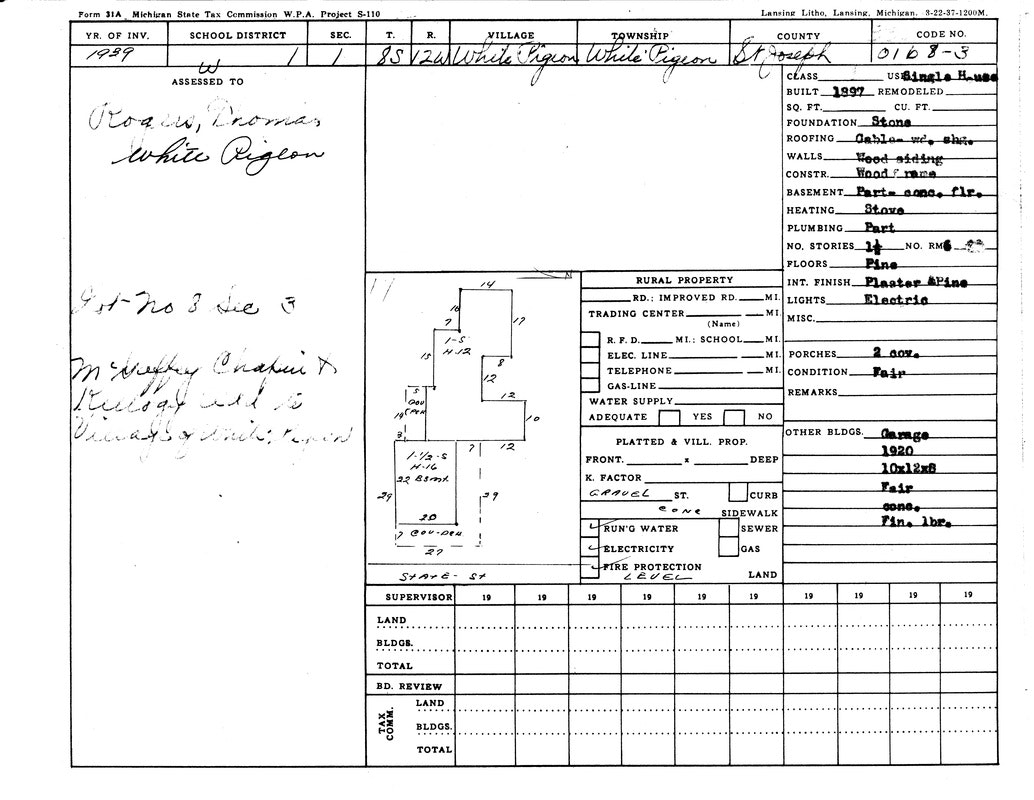 Form 31A Michigan State Tax Commission W.P.A. Project S-110 Lansing Litho, Lansing, Michigan. 3-22-37-1200M.
YR. OF INV. SCHOOL DISTRICT SEC. T. R. VILLAGE TOWNSHIP COUNTY CODE NO.
1939 W 1 1 8S 12W White Pigeon White Pigeon St Joseph 0168-3
ASSESSED TO
Rogers, Thomas
White Pigeon
Lot No 8 Sec 3
Chapin &
Kellogg add to
Village of White Pigeon
14
16
7
17
1-S
H-12
15
8
12
12
5
COV
PCH
14
10
3
7
12
1-1/2-S
H-16
22 Bsmt
29
29
20
7 COV-PCH
27
STATE-ST
RURAL PROPERTY
RD.; IMPROVED RD. MI.
TRADING CENTER MI.
(Name)
R. F. D. MI.; SCHOOL MI.
ELEC. LINE MI.
TELEPHONE MI.
GAS-LINE
WATER SUPPLY
ADEQUATE YES NO
PLATTED & VILL. PROP.
FRONT. x DEEP
K. FACTOR
GRAVEL ST. CURB
CONC SIDEWALK
RUN'G WATER SEWER
ELECTRICITY GAS
FIRE PROTECTION
LEVEL LAND
CLASS USE Single House
BUILT 1897 REMODELED
SQ. FT. CU. FT.
FOUNDATION Stone
ROOFING Gable- wd. shg.
WALLS Wood siding
CONSTR. Wood frame
BASEMENT Part- conc. flr.
HEATING Stove
PLUMBING Part
NO. STORIES 1½ NO. RM 6
FLOORS Pine
INT. FINISH Plaster &Pine
LIGHTS Electric
MISC.
PORCHES 2 cov.
CONDITION Fair
REMARKS
OTHER BLDGS. Garage
1920
10x12x8
Fair
conc.
Fin. lbr.
SUPERVISOR 19 19 19 19 19 19 19 19 19 19
LAND
BLDGS.
TOTAL
BD. REVIEW
TAX COMM.
LAND
BLDGS.
TOTAL